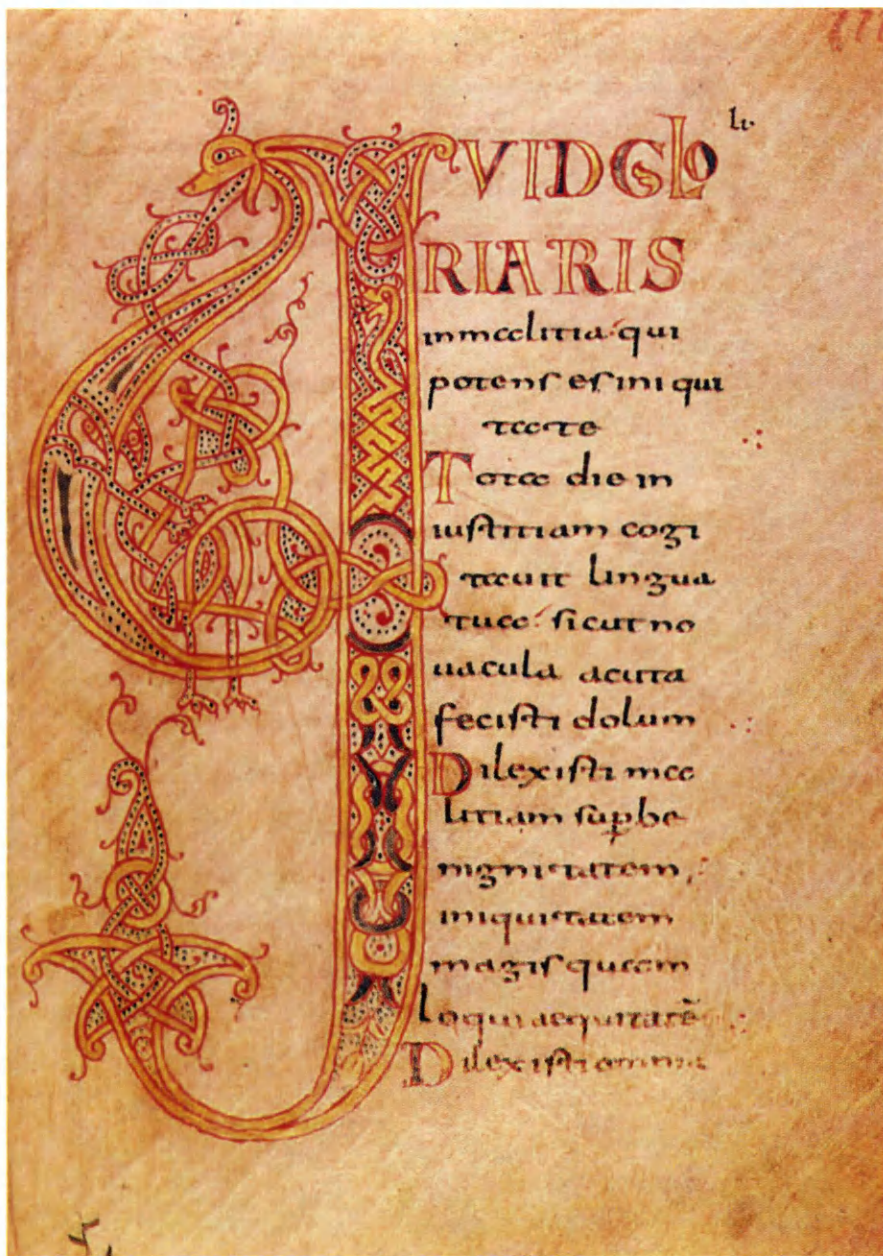 lı·
QVID GLO
RIARIS
in malitia· qui
potens es iniqui
tate
Tota die in
iustitiam cogi
tauit lingua
tua· sicut no
uacula acuta
fecisti dolum
Dilexisti ma
litiam sup be
nignitatem,
iniquitatem
magis quam
loqui aequitatē
Dilexisti omnia